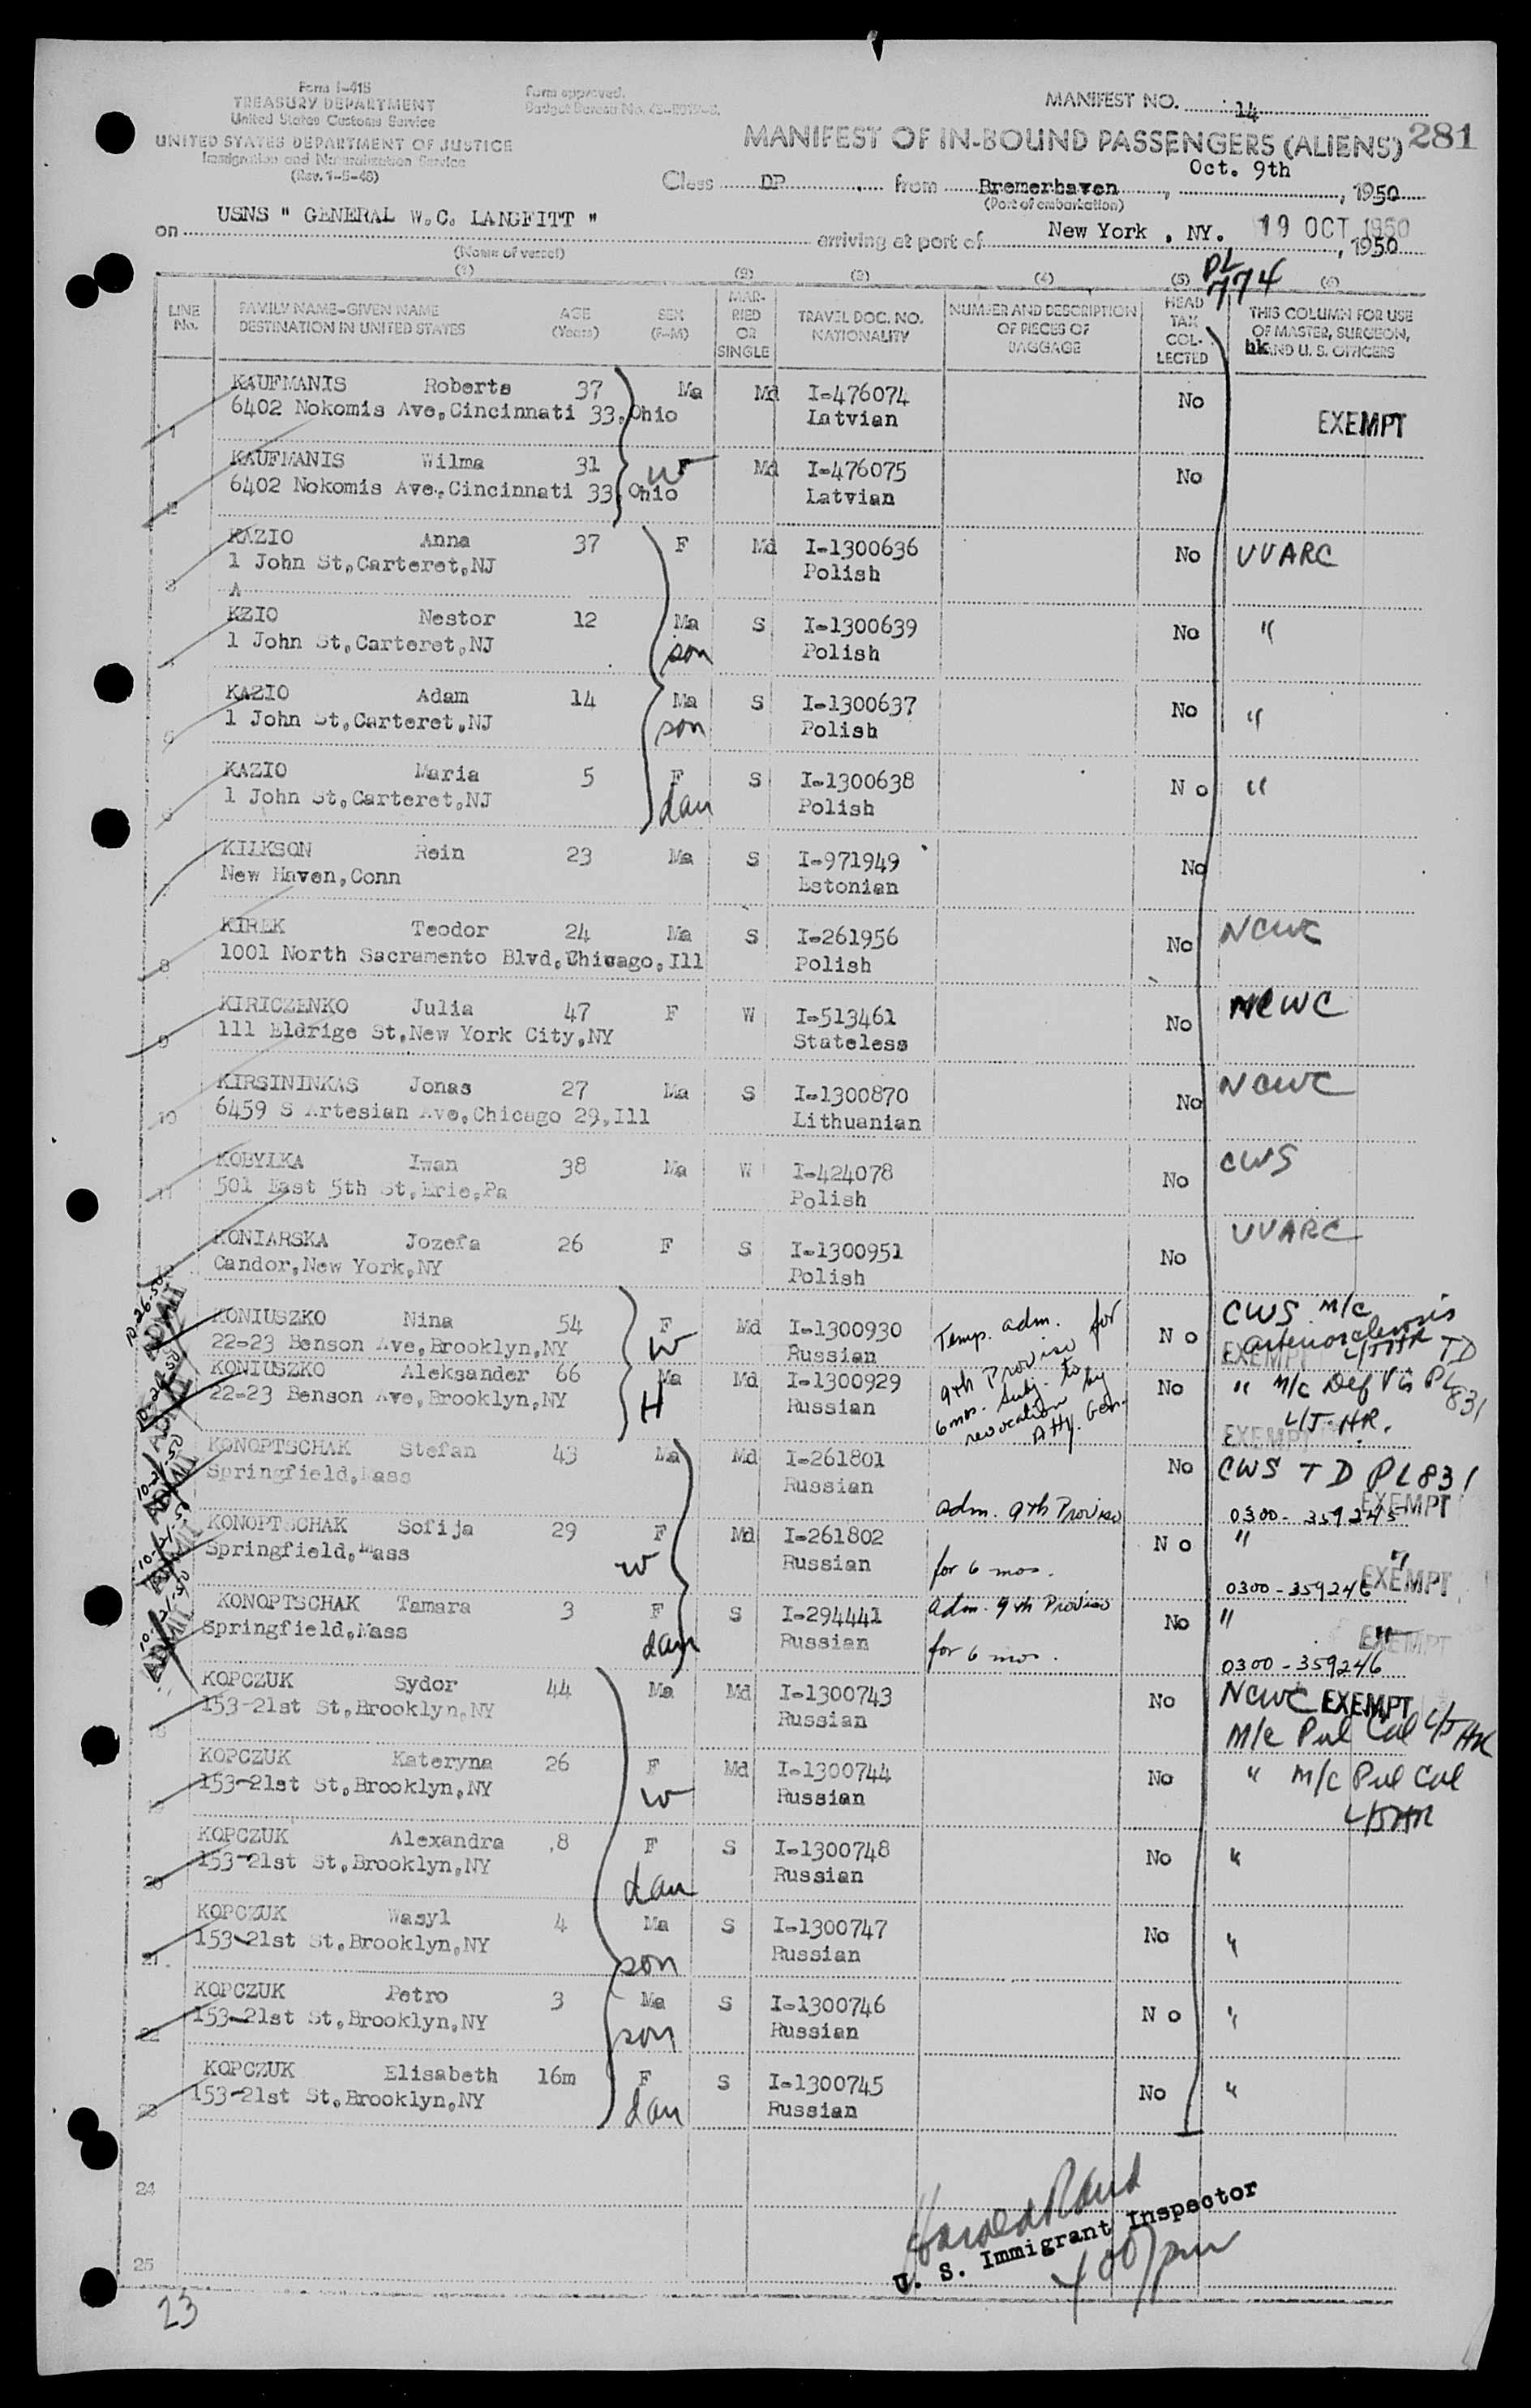 Form I-418
TREASURY DEPARTMENT
United States Customs Service
UNITED STATES DEPARTMENT OF JUSTICE
Immigration and Naturalization Service
(Rev. 1-5-48)
Form approved.
Budget Bureau No.
MANIFEST NO. 14
MANIFEST OF IN-BOUND PASSENGERS (ALIENS) 281
Class DP from Bremerhaven, Oct. 9th, 1950
(Port of embarkation)
on USNS " GENERAL W.C. LANGFITT " arriving at port of New York, NY. 19 OCT 1950, 1950
(Name of vessel)
(1) (2) (3) (4) (5) (6)
PL 774
LINE No.
FAMILY NAME-GIVEN NAME DESTINATION IN UNITED STATES
AGE (Years)
SEX (F-M)
MARRIED OR SINGLE
TRAVEL DOC. NO. NATIONALITY
NUMBER AND DESCRIPTION OF PIECES OF BAGGAGE
HEAD TAX COLLECTED
THIS COLUMN FOR USE OF MASTER, SURGEON, AND U. S. OFFICERS
hk
1 KAUFMANIS Roberts 37 Ma Md I-476074 No
6402 Nokomis Ave,Cincinnati 33,Ohio Latvian EXEMPT
2 KAUFMANIS Wilma 31 F W Md I-476075 No
6402 Nokomis Ave.,Cincinnati 33,Ohio Latvian
3 KAZIO Anna 37 F Md I-1300636 No UVARC
1 John St,Carteret,NJ Polish
A
4 KZIO Nestor 12 Ma S I-1300639 No "
1 John St,Carteret,NJ son Polish
5 KAZIO Adam 14 Ma S I-1300637 No "
1 John St,Carteret,NJ son Polish
6 KAZIO Maria 5 F S I-1300638 N o "
1 John St,Carteret,NJ dau Polish
7 KILKSON Rein 23 Ma S I-971949 No
New Haven,Conn Estonian
8 KIREK Teodor 24 Ma S I-261956 No NCWC
1001 North Sacramento Blvd,Chicago,Ill Polish
9 KIRICZENKO Julia 47 F W I-513461 No NCWC
111 Eldrige St,New York City,NY Stateless
10 KIRSININKAS Jonas 27 Ma S I-1300870 No NCWC
6459 S Artesian Ave,Chicago 29,Ill Lithuanian
11 KOBYLKA Iwan 38 Ma W I-424078 No CWS
501 East 5th St,Erie,Pa Polish
12 KONIARSKA Jozefa 26 F S I-1300951 No UVARC
Candor,New York,NY Polish
10-26-50 ADMIT KONIUSZKO Nina 54 F Md I-1300930 Temp. adm. for N o CWS M/c arteriosclerosis
22-23 Benson Ave,Brooklyn,NY W Russian 9th Proviso EXEMPT L/J-HR TD
ADMIT KONIUSZKO Aleksander 66 Ma Md I-1300929 6 mos. subj. to No " M/c Def Vis PL 831
22-23 Benson Ave,Brooklyn,NY H Russian revocation by Atty. Gen. L/J-HR. EXEMPT
10-21-50 ADMIT KONOPTSCHAK Stefan 43 Ma Md I-261801 No CWS T D PL 831
Springfield,Mass Russian Adm. 9th Proviso EXEMPT 0300-359245
10-21-50 ADMIT KONOPTSCHAK Sofija 29 F Md I-261802 N o " "
Springfield,Mass W Russian for 6 mos. 0300-359246 EXEMPT
10-21-50 ADMIT KONOPTSCHAK Tamara 3 F S I-294441 Adm. 9th Proviso No " "
Springfield,Mass dau Russian for 6 mos. EXEMPT 0300-359246
18 KOPCZUK Sydor 44 Ma Md I-1300743 No NCWC EXEMPT
153-21st St,Brooklyn,NY Russian M/c Pul Cal L/J HR
19 KOPCZUK Kateryna 26 F Md I-1300744 No " M/c Pul Cal
153-21st St,Brooklyn,NY W Russian L/J HR
20 KOPCZUK Alexandra 8 F S I-1300748 No "
153-21st St,Brooklyn,NY dau Russian
21 KOPCZUK Wasyl 4 Ma S I-1300747 No "
153-21st St,Brooklyn,NY son Russian
22 KOPCZUK Petro 3 Ma S I-1300746 N o "
153-21st St,Brooklyn,NY son Russian
23 KOPCZUK Elisabeth 16m F S I-1300745 No "
153-21st St,Brooklyn,NY dau Russian
24
25
Harold Rand
U. S. Immigrant Inspector
400 pm
23